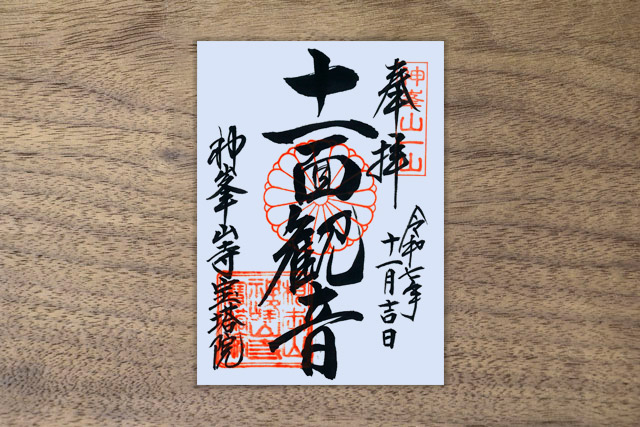 奉拝
神峯山一山
令和七年
十一月吉日
十一面観音
神峯山寺宝塔院